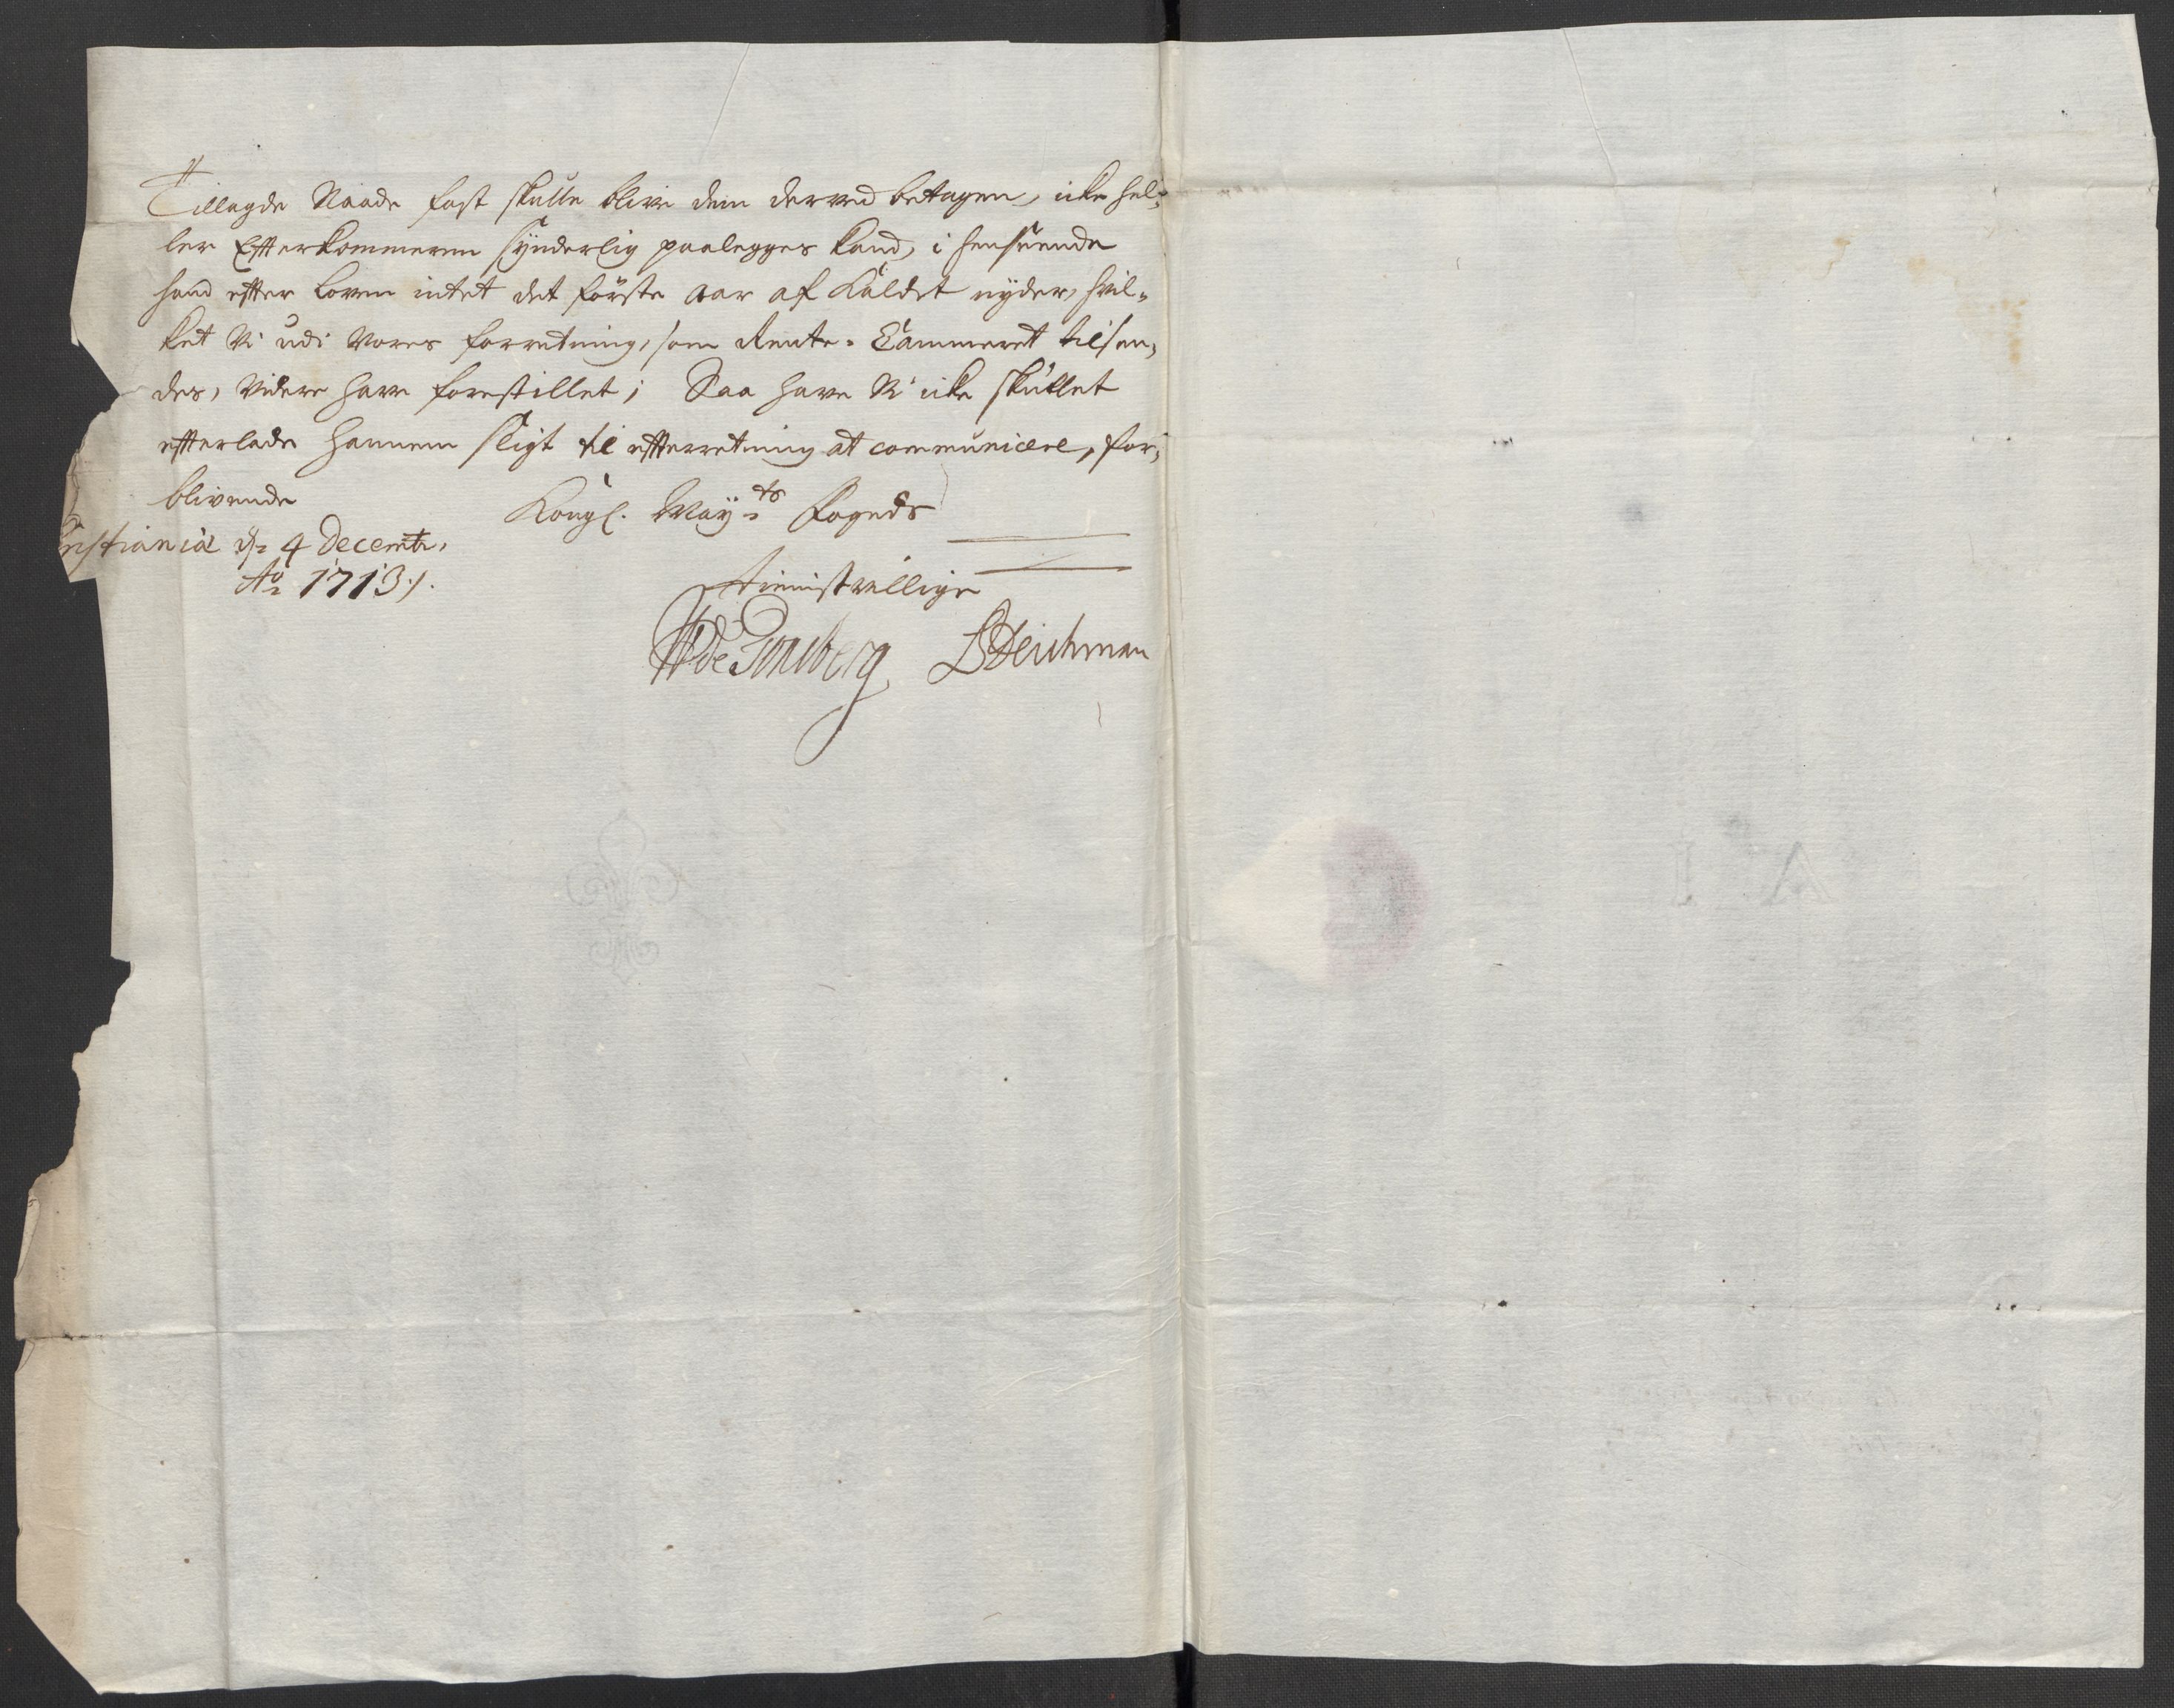 Tillagde Naade fast skulle blive dem derved betagen, icke hel-
ler Efterkommeren synderlig paalegges kand, i henseende
hand efter Loven intet det förste Aar af Kaldet nyder, hvil-
ket Vi udi Vores forretning, som Rente-Cammeret tilsen-
des, Videre have forestillet; Saa have Vi icke skullet
efterlade hannem sligt til efterretning at communicere, for-
blivende
Kongl. May:ts Fogeds
ristiania d: 4 Decemb:
Ao 1713.
tienistvillige
de Tonsberg BDeichman